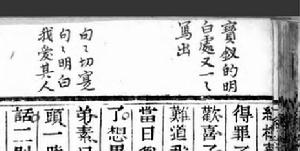 寶釵的明
白處又一〻
寫出
句〻切寔
句〻明白
我愛其人
得罪了
歡喜了
難道
當日
了想
弟素日
頭一時
話二則